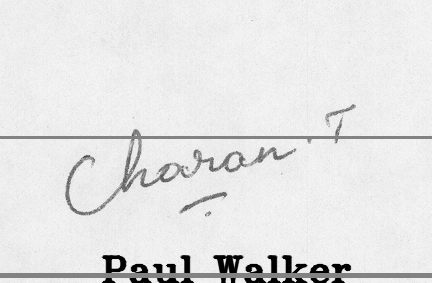 Charan. T
Paul Walker